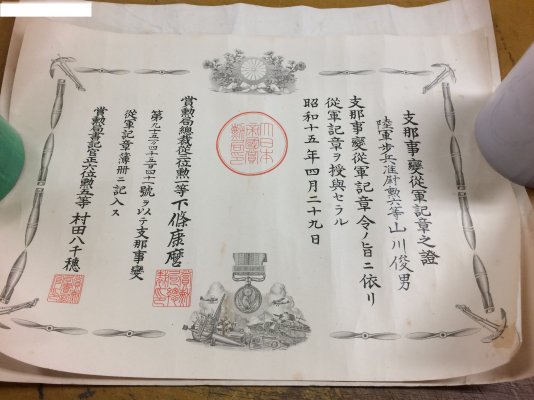 支那事變從軍記章之證
陸軍步兵准尉勲六等山川俊男
支那事變從軍記章令ノ旨ニ依リ
從軍記章ヲ授與セラル
昭和十五年四月二十九日
大日本帝國賞勳局印
賞勲局總裁從三位勲一等下條康麿
第九十五万四千五百四十一號ヲ以テ支那事變
從軍記章簿冊ニ記入ス
賞勲局書記官正六位勲五等村田八千穗